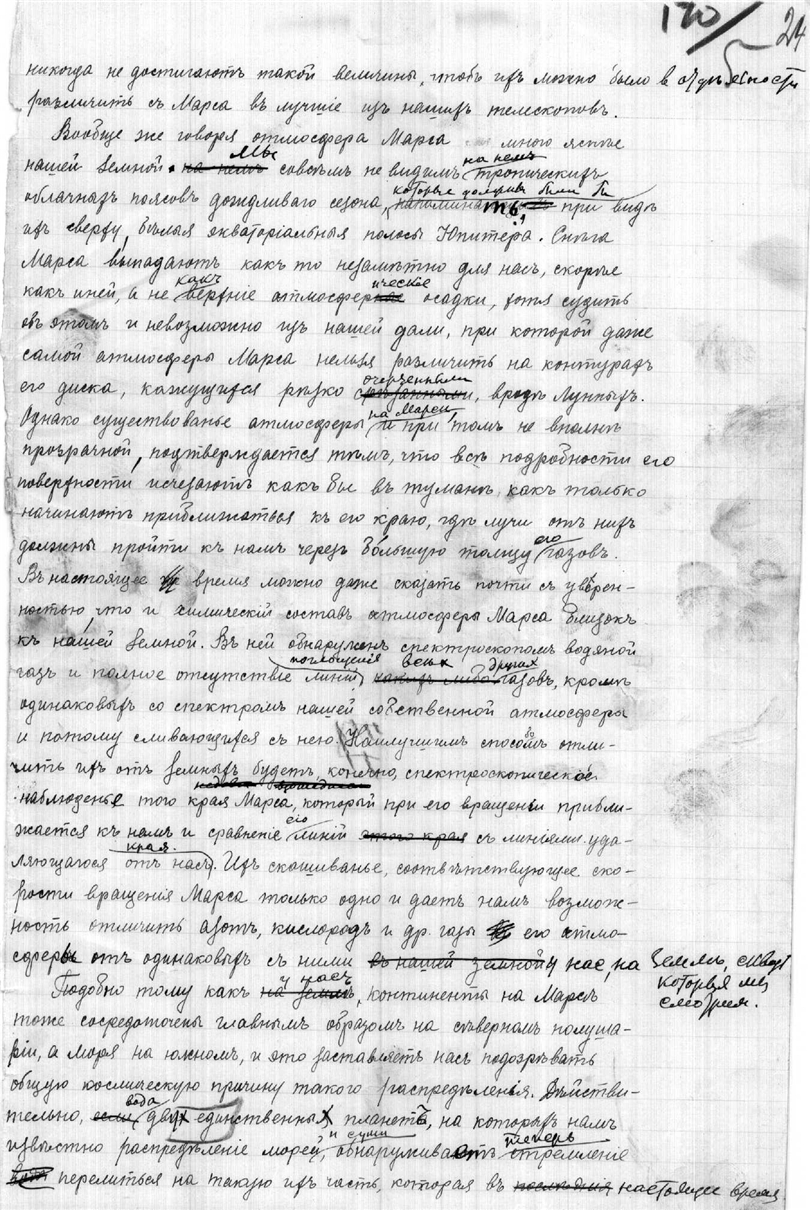 170/ 24
никогда не достигаютъ такой величины, чтобъ ихъ можно было в отдѣльности
различить съ Марса въ лучшіе изъ нашихъ телескоповъ.
Вообще же говоря атмосфера Марса много яснѣе
нашей земной. Мы совсѣмъ не видимъ на немъ тропическихъ
облачныхъ поясовъ дождливаго сезона, которые должны были бы напоминать, при видѣ
ихъ сверху, бѣлыя экваторіальныя полосы Юпитера. Снѣга
Марса выпадаютъ какъ то незамѣтно для насъ, скорѣе
какъ иней, а не какъ верхніе атмосферическіе осадки, хотя судить
объ этомъ и невозможно изъ нашей дали, при которой даже
самой атмосферы Марса нельзя различить на контурахъ
его диска, кажущихся рѣзко очерченными, вродѣ Лунныхъ.
Однако существованье атмосферы на Марсѣ, и при томъ не вполнѣ
прозрачной, подтверждается тѣмъ, что всѣ подробности его
поверхности исчезаютъ какъ бы въ туманѣ, какъ только
начинаютъ приближаться къ его краю, гдѣ лучи отъ нихъ
должны пройти къ намъ черезъ бо́льшую толщу его газовъ.
Въ настоящее время можно даже сказать почти съ увѣрен-
ностью, что и химическій составъ атмосферы Марса близокъ
къ нашей земной. Въ ней обнаруженъ спектроскопомъ водяной
газъ и полное отсутствіе поглощенія линій всѣхъ другихъ газовъ, кромѣ
одинаковыхъ со спектромъ нашей собственной атмосферы
и потому сливающихся съ нею. Наилучшимъ способомъ отли-
чить ихъ отъ земныхъ будетъ, конечно, спектроскопическое
наблюденье того края Марса, который при его вращеніи прибли-
жается къ намъ и сравненіе его линій съ линіями уда-
ляющагося отъ насъ края. Ихъ скашиванье, соотвѣтствующее ско-
рости вращенія Марса только одно и даетъ намъ возмож-
ность отличить азотъ, кислородъ и др. газы его атмо-
сферы отъ одинаковыхъ съ ними у нас, на Земле, сквозь
которую мы
смотрим.
Подобно тому какъ у насъ, континенты на Марсѣ
тоже сосредоточены главнымъ образомъ на сѣверномъ полуша-
ріи, а моря на южномъ, и это заставляетъ насъ подозрѣвать
общую космическую причину такого распредѣленья. Дѣйстви-
тельно, вода двухъ единственныхъ планетъ, на которыхъ намъ
извѣстно распредѣленіе морей и суши, обнаруживаетъ теперь стремленіе
перелиться на такую ихъ часть, которая въ настоящее время